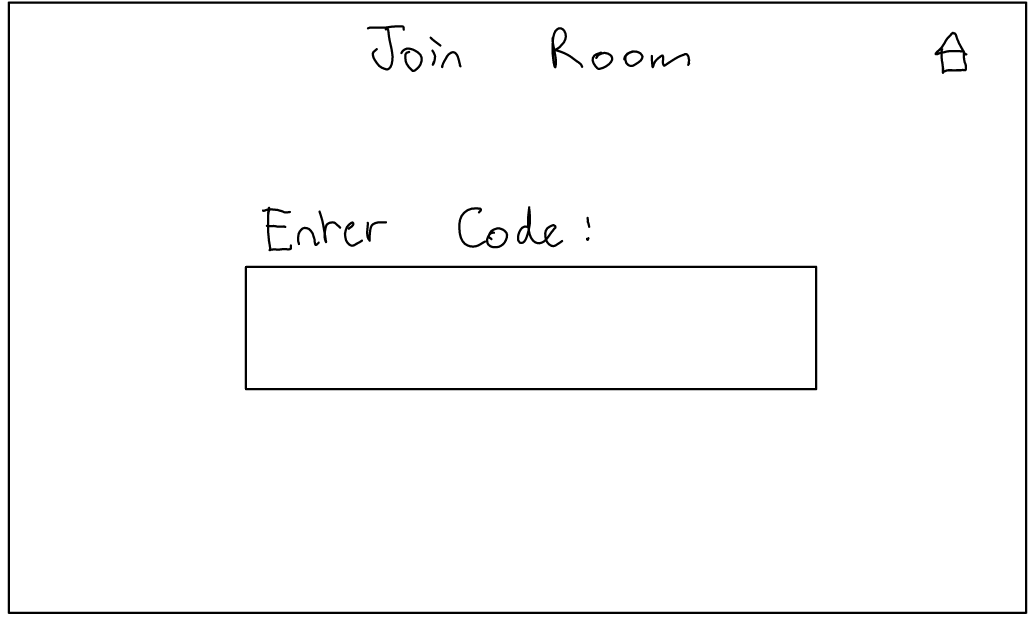 Join Room
Enter Code: